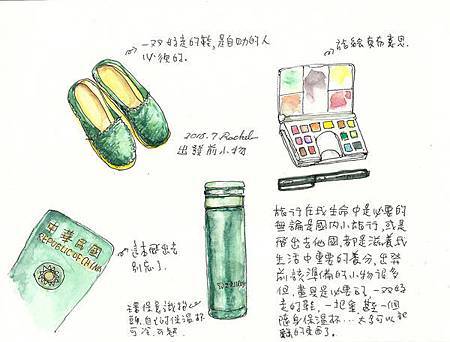 一双好走的鞋,是自助的人
必須的.
真有意思.
2015.7 Rachel
出發前小物
中華民國
REPUBLIC OF CHINA
這本飛出去
別忘了.
環保意識抬
頭,自代的保溫杯
可冷,可熱
旅行在我生命中是必要的
無論是國內小旅行,或是
飛出去他國,都是滋養我
生活中重要的養分,出發
前該準備的小物很多
但,畫具是必要的,一双好
走的鞋,一起重,甚至一個
隨身保溫杯...可以記
的東西了.